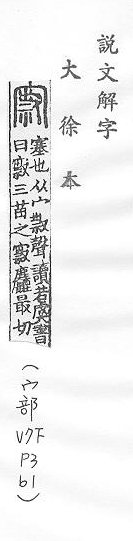 說文解字
大徐本
㝮
塞也从宀𠭥聲讀若虞書
曰㝮三苗之㝮麤最切
(宀部 V7下 P3 b1)